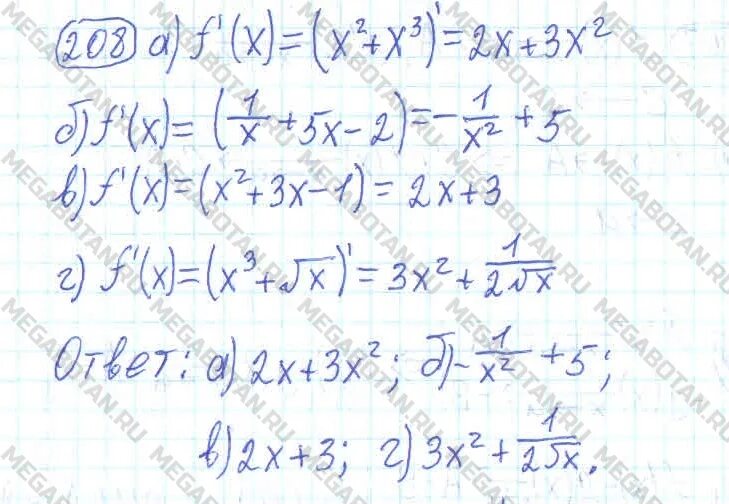 208 а) f'(x) = (x² + x³)' = 2x + 3x²
б) f'(x) = (1/x + 5x - 2) = -1/x² + 5
в) f'(x) = (x² + 3x - 1) = 2x + 3
г) f'(x) = (x³ + √x)' = 3x² + 1/(2√x)
Ответ: а) 2x + 3x²; б) -1/x² + 5;
в) 2x + 3; г) 3x² + 1/(2√x).
MEGABOTAN.RU